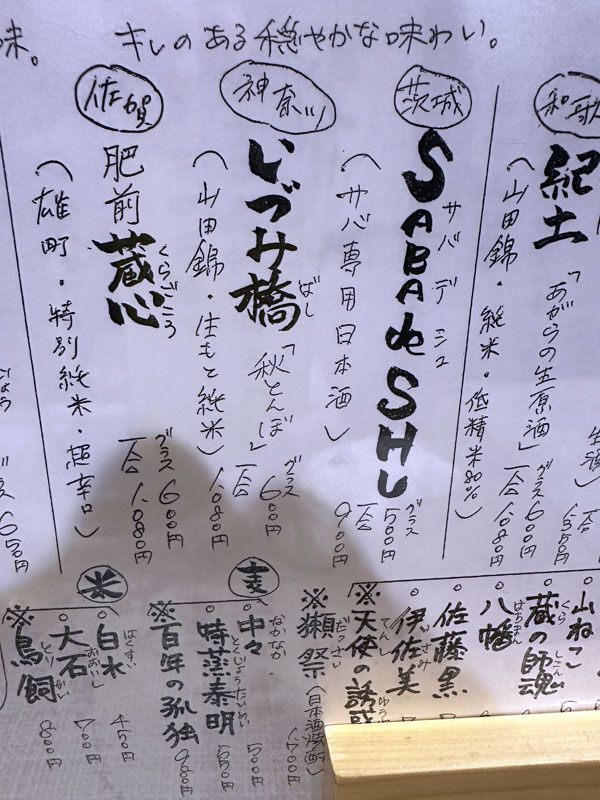 キレのある穏やかな味わい。
味。
和歌
紀土
「あがらの生原酒」
(山田錦・純米・低精米80%)
グラス600円
一合1080円
茨城
SABA de SHU
サバデシュ
(サバ専用日本酒)
グラス500円
一合900円
神奈川
いづみ橋
ばし
「秋とんぼ」
(山田錦・生もと純米)
グラス600円
一合1080円
佐賀
肥前蔵心
くらごころ
(雄町・特別純米・超辛口)
グラス600円
一合1080円
650円
山ねこ
蔵の師魂
くら しこん
八幡
はちまん
佐藤黒
伊佐美
いさみ
※天使の誘惑
てんし ゆうわ
※獺祭
だっさい
(日本酒焼酎)
麦
中々
なかなか
500円
特蒸泰明
とくじょうたいめい
550円
※百年の孤独
980円
米
白水
はくすい
450円
大石
おおいし
500円
※鳥飼
とりかい
800円